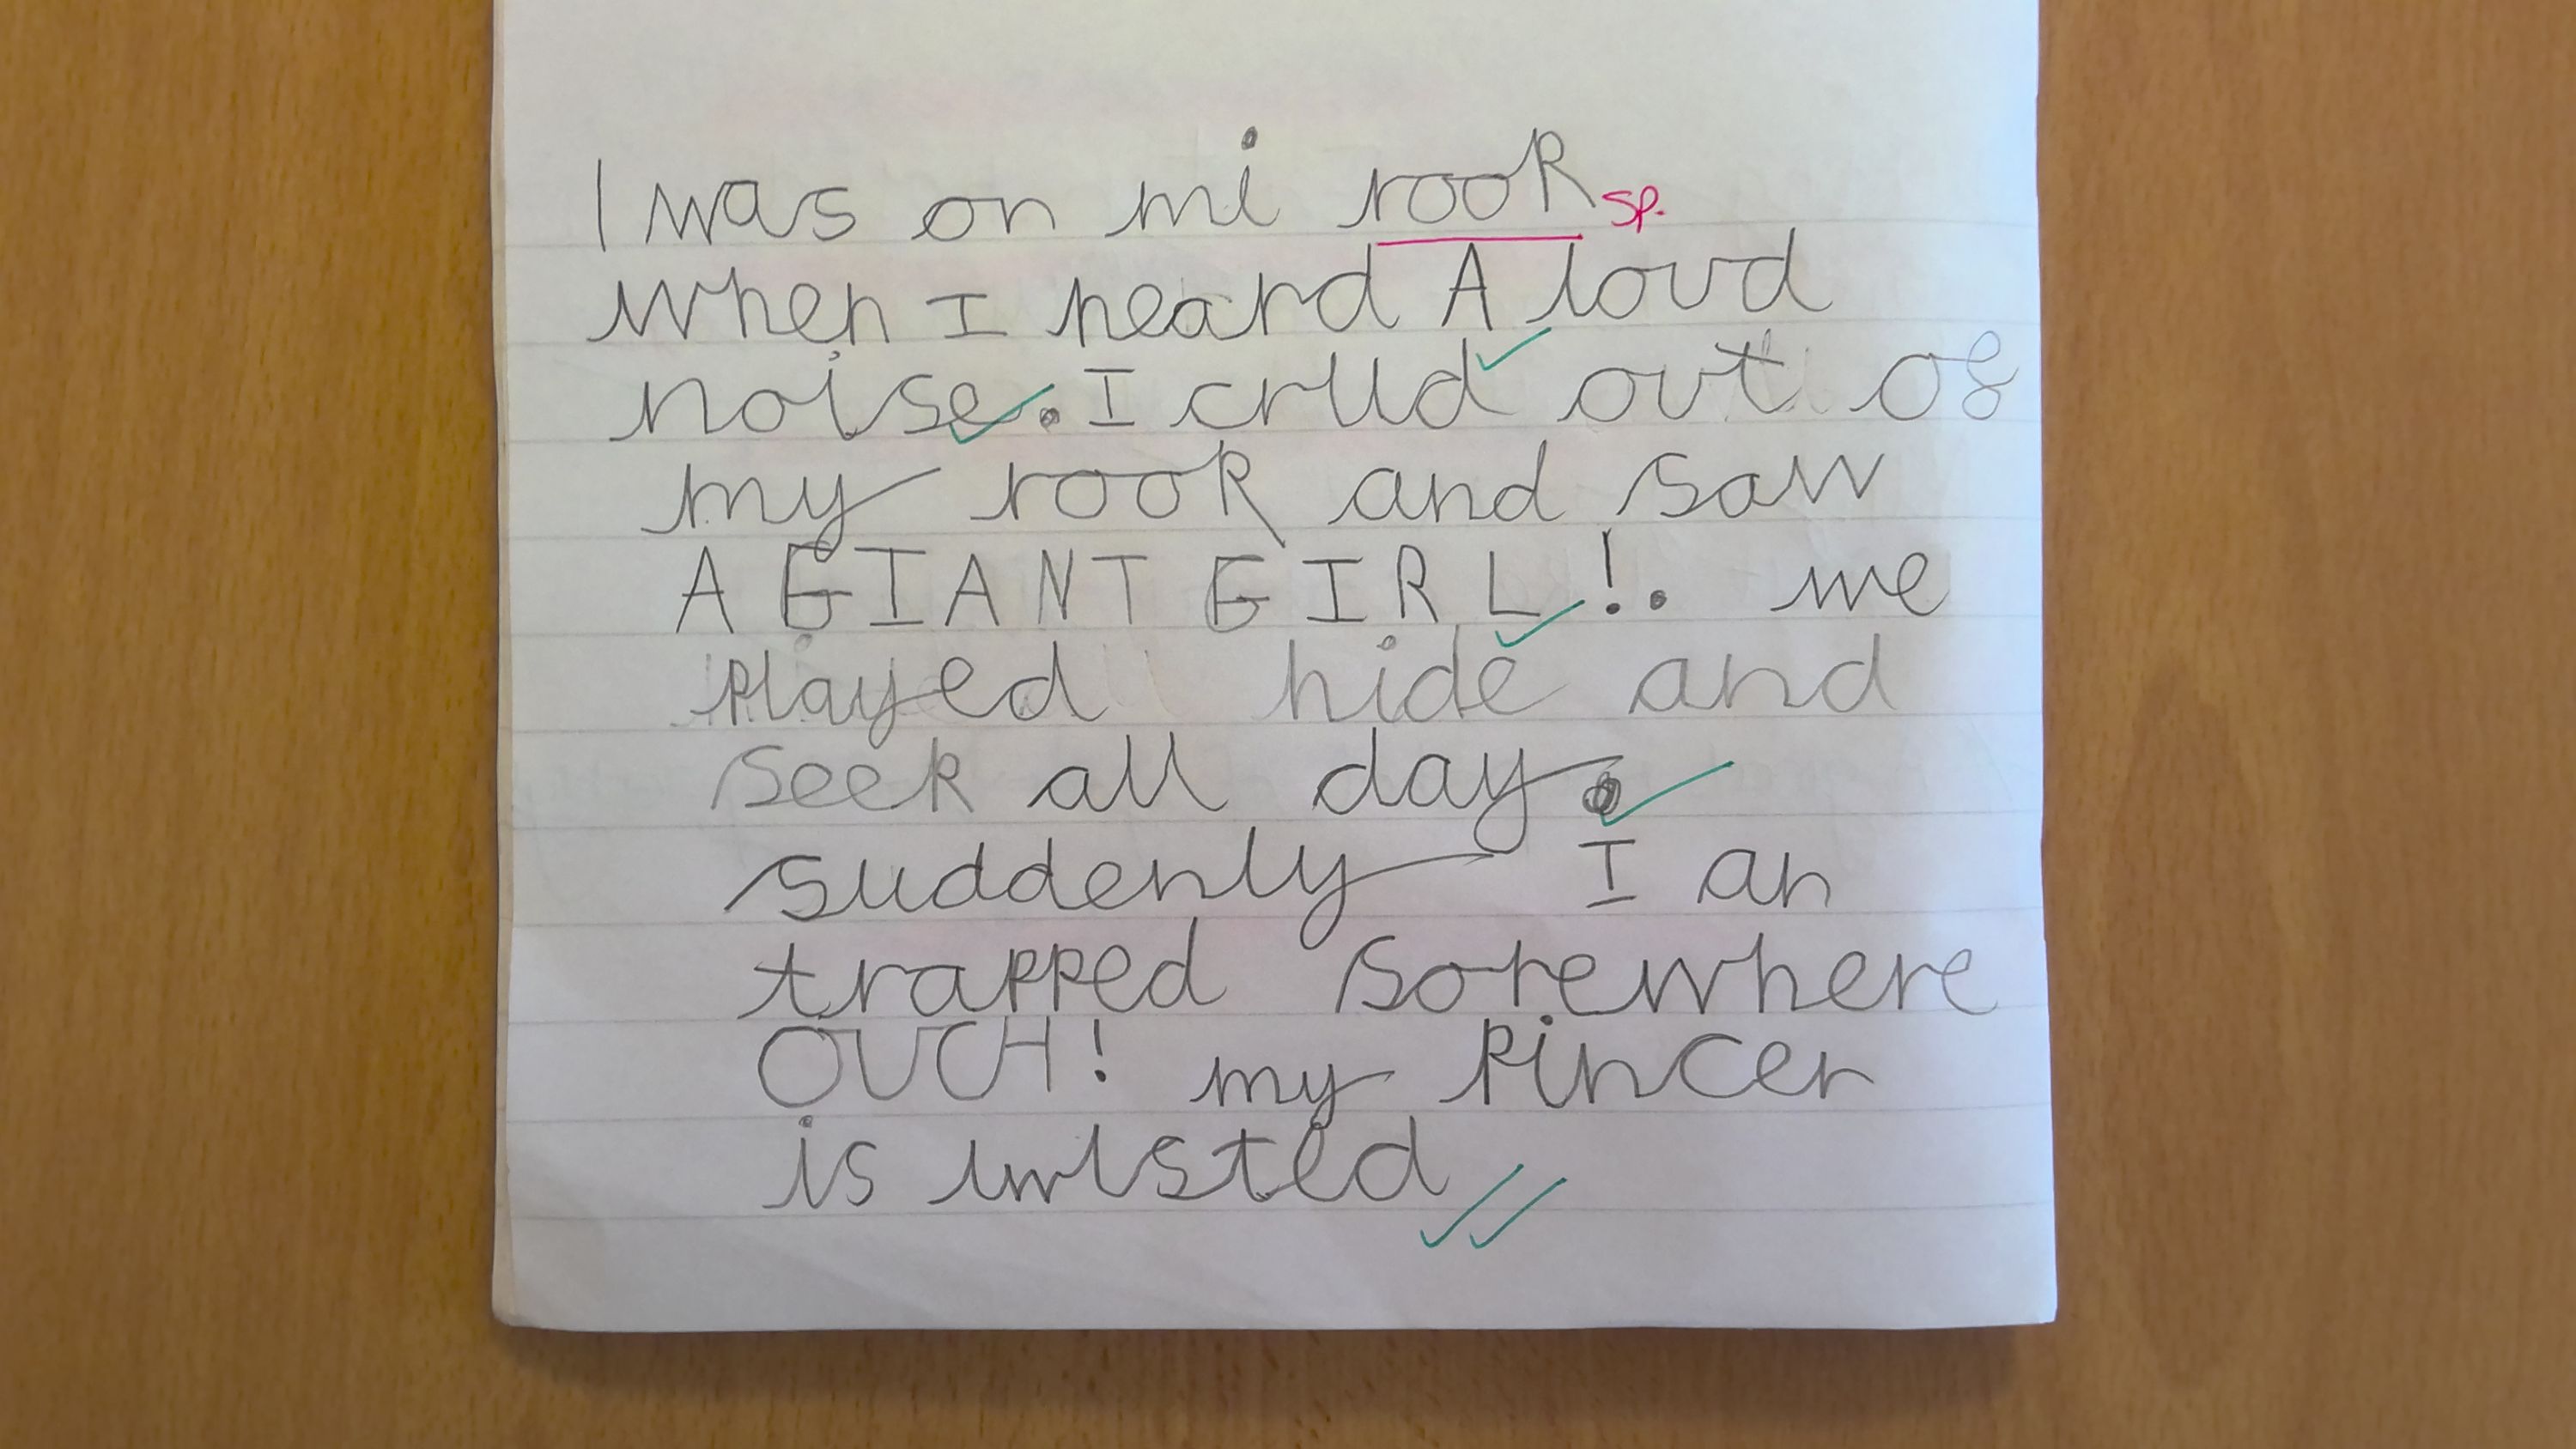 I was on mi rook sp.
when I heard A loud
noise. I crlld out of
my rook and saw
A GIANT GIRL!. we
played hide and
seek all day.
suddenly I an
trapped sorewhere
OUCH! my pincer
is twisted